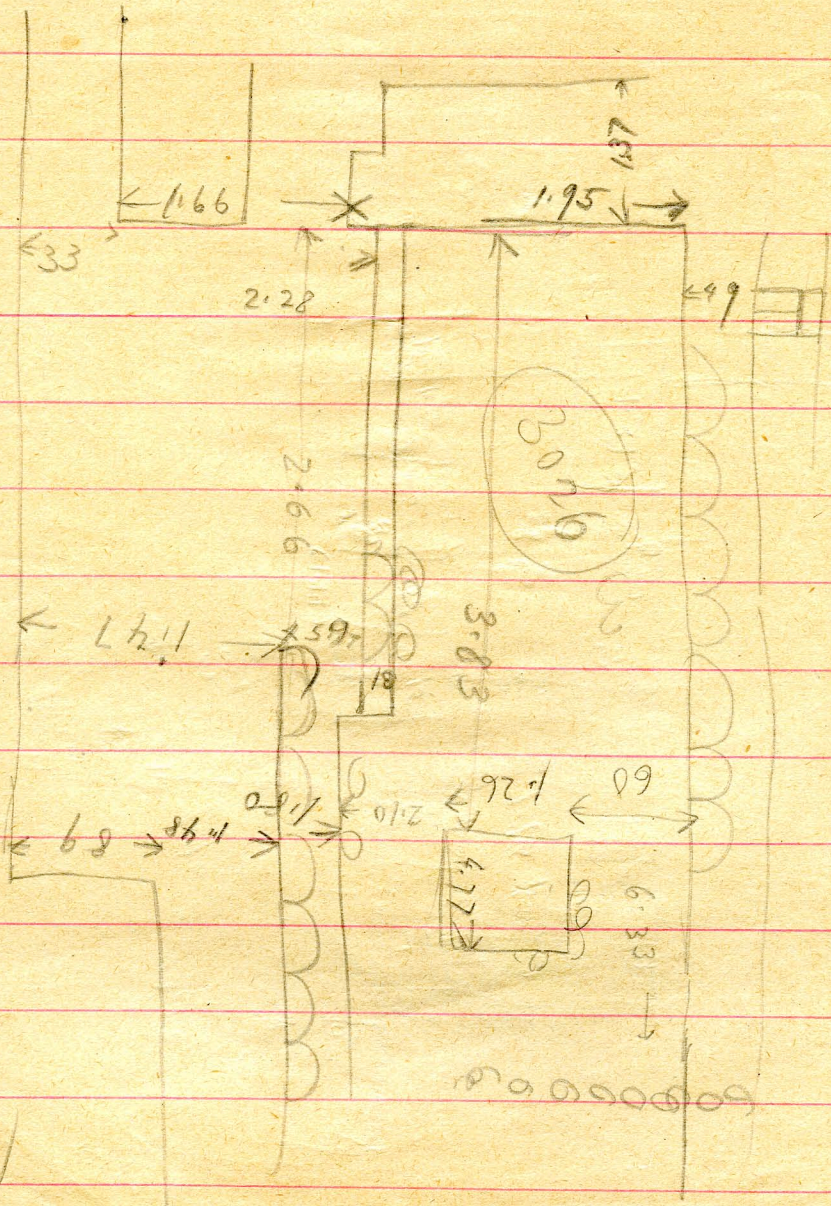 1.37
1.66
1.95
33
2.28
49
2.66
3.83
1.47
65
18
1.80
2.10
1.26
60
89
1.48
4.77
6.33